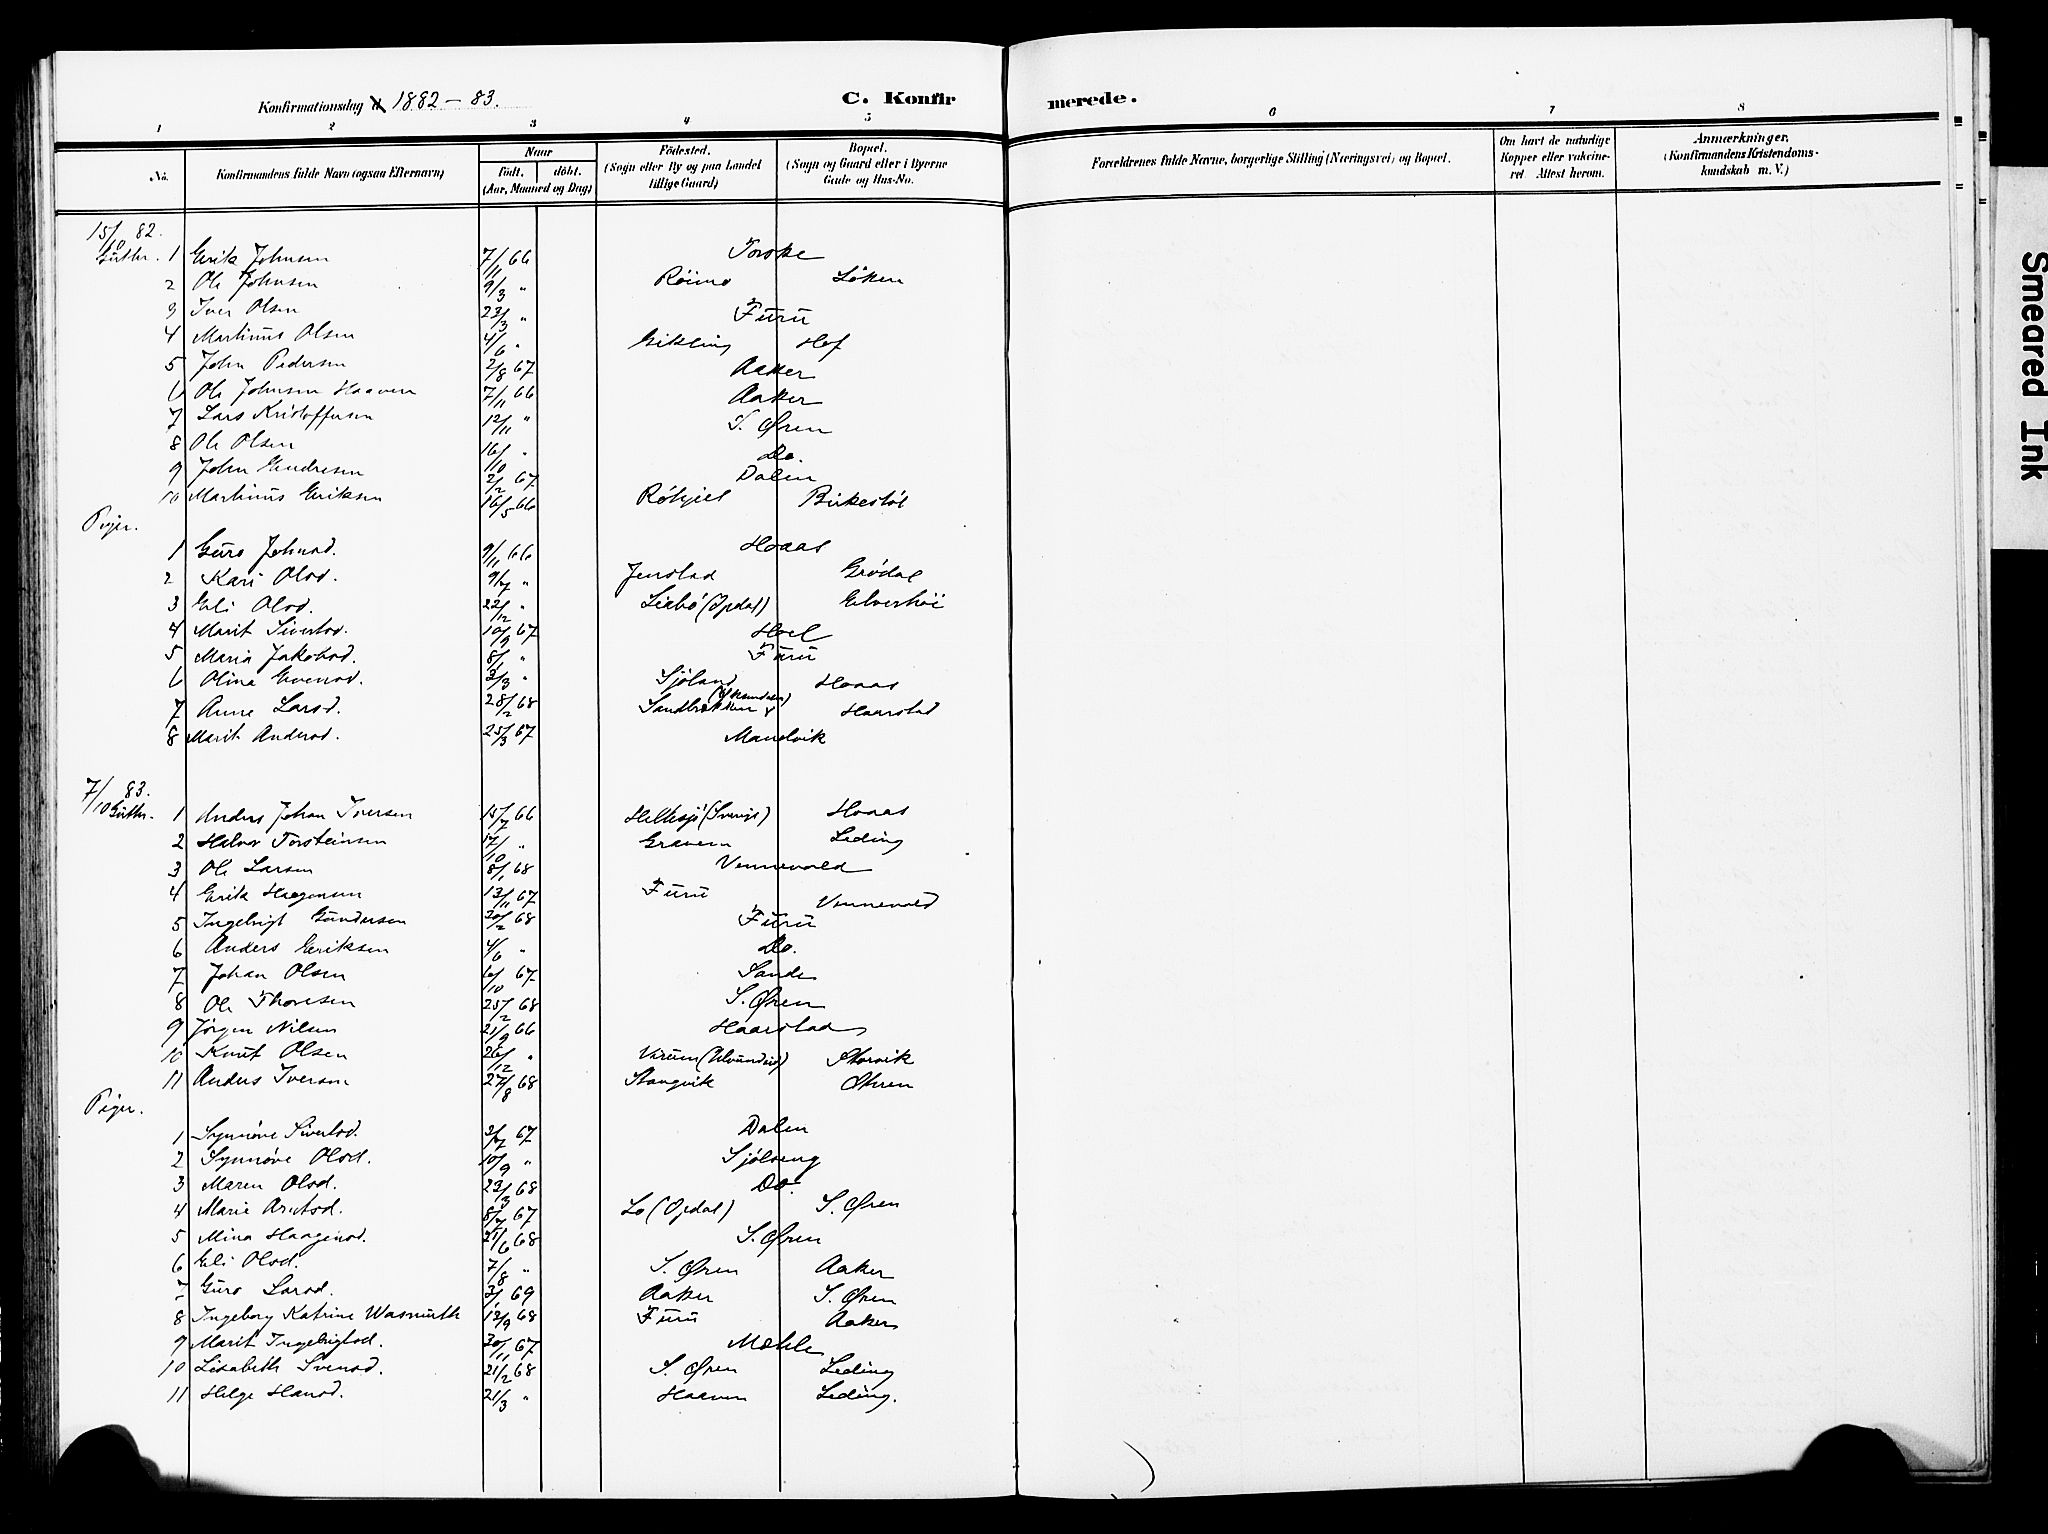 Konfirmationsdag d 1882-83.
C. Konfirmerede.
1 2 3 4 5 6 7 8
No. Konfirmandens fulde Navn (ogsaa Efternavn) Naar født. døbt. (Aar, Maaned og Dag) Fødested. (Sogn eller By og paa Landet tillige Gaard) Bopæl. (Sogn og Gaard eller i Byerne Gade og Hus-No. Forældrenes fulde Navne, borgerlige Stilling (Næringsvei) og Bopæl. Om havt de naturlige Kopper eller vakcineret. Attest herom. Anmærkninger. (Konfirmandens Kristendomskundskab m. V.)
15/10 82.
Gutter. 1 Erik Johnsen 7/11 66 Torske
2 Ole Johnsen 9/3 " Röimo Löken
3 Iver Olsen 23/3 " Furu
4 Martinus Olsen 4/6 " Gikling Hof
5 John Pedersen 2/8 67 Aaker
6 Ole Johnsen Haaven 7/11 66 Aaker
7 Lars Kristoffersen 12/11 " S. Øren
8 Ole Olsen 16/10 " Do.
9 John Endresen 2/2 67 Dalen
10 Martinus Eriksen 16/5 66 Røkjel Birkestøl
Piger.
1 Guro Johnsd. 9/11 66 Hoaas
2 Kari Olsd. 9/7 " Jenstad Grødal
3 Eli Olsd. 22/12 " Liabø (Opdal) Elverhöi
4 Marit Sivertsd. 10/9 67 Hoel
5 Maria Jakobsd. 8/1 " Furu
6 Olina Evensd. 3/3 " Sjöland Hoaas
7 Anne Larsd. 28/2 68 Sandbrækken Haarstad
8 Marit Andersd. 25/3 67 Mandvik
7/10 83.
Gutter. 1 Anders Johan Iversen 15/7 66 Hellesjö (Sverige) Hoaas
2 Halvor Torsteinsen 17/10 " Gravem Leding
3 Ole Larsen 8/1 68 Vennevold
4 Erik Haagensen 13/11 67 Furu Vennevold
5 Ingebrigt Gundersen 20/2 68 Furu
6 Anders Eriksen 4/6 " Do.
7 Johan Olsen 6/10 67 Sande
8 Ole Thoresen 25/2 68 S. Øren
9 Jørgen Nilsen 21/9 66 Haarstad
10 Knut Olsen 26/12 " Virum (Ulvundeid) Storvik
11 Anders Iversen 27/8 68 Stangvik Øren
Piger.
1 Synnøve Sivertsd. 2/7 67 Dalen
2 Synnøve Olsd. 10/9 " Sjølseng
3 Maren Olsd. 23/3 68 Do.
4 Marie Arntsd. 8/7 67 Lo (Opdal) S. Øren
5 Mina Haagensd. 21/6 68 S. Øren
6 Eli Olsd. 7/8 " S. Øren Aaker
7 Guro Larsd. 3/1 69 Aaker S. Øren
8 Ingeborg Katrine Wasmuth 12/9 68 Furu Aaker
9 Marit Ingebrigtsd. 30/11 67 Mæhle
10 Lisabeth Svensd. 21/2 68 S. Øren Leding
11 Helge Hansd. 21/3 " Haaven Leding.
Smeared Ink